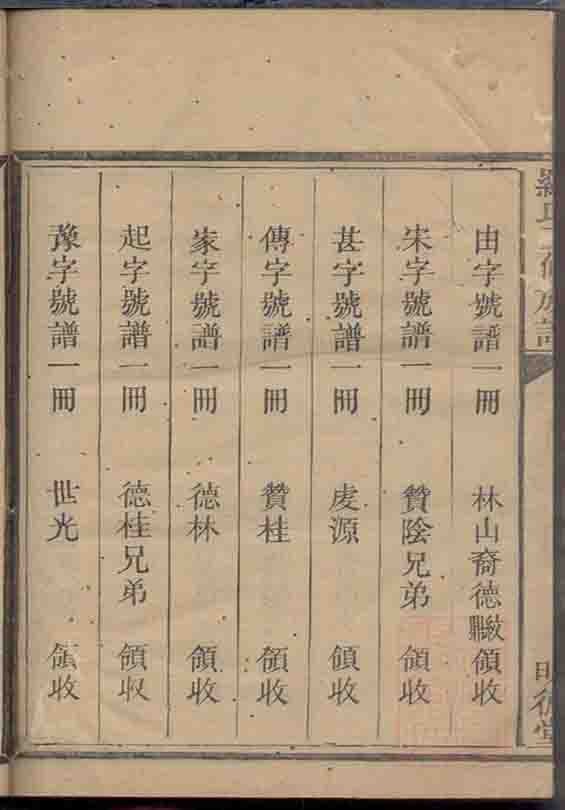 族譜
由字號譜一冊 林山裔德 領收
宋字號譜一冊 贊陰兄弟 領收
甚字號譜一冊 虔源 領收
傳字號譜一冊 贊桂 領收
家字號譜一冊 德林 領收
起字號譜一冊 德桂兄弟 領收
豫字號譜一冊 世光 領收